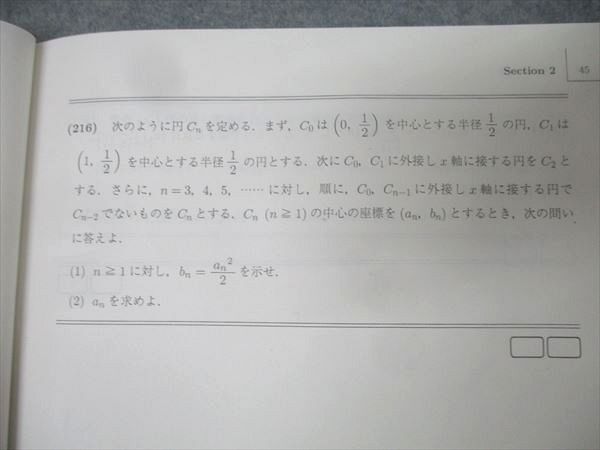 Section 2 45
(216) 次のように円 C_n を定める．まず，C_0 は (0, 1/2) を中心とする半径 1/2 の円，C_1 は
(1, 1/2) を中心とする半径 1/2 の円とする．次に C_0, C_1 に外接し x 軸に接する円を C_2 と
する．さらに，n = 3, 4, 5, …… に対し，順に，C_0, C_{n-1} に外接し x 軸に接する円で
C_{n-2} でないものを C_n とする．C_n (n ≧ 1) の中心の座標を (a_n, b_n) とするとき，次の問い
に答えよ．
(1) n ≧ 1 に対し，b_n = a_n^2/2 を示せ．
(2) a_n を求めよ．